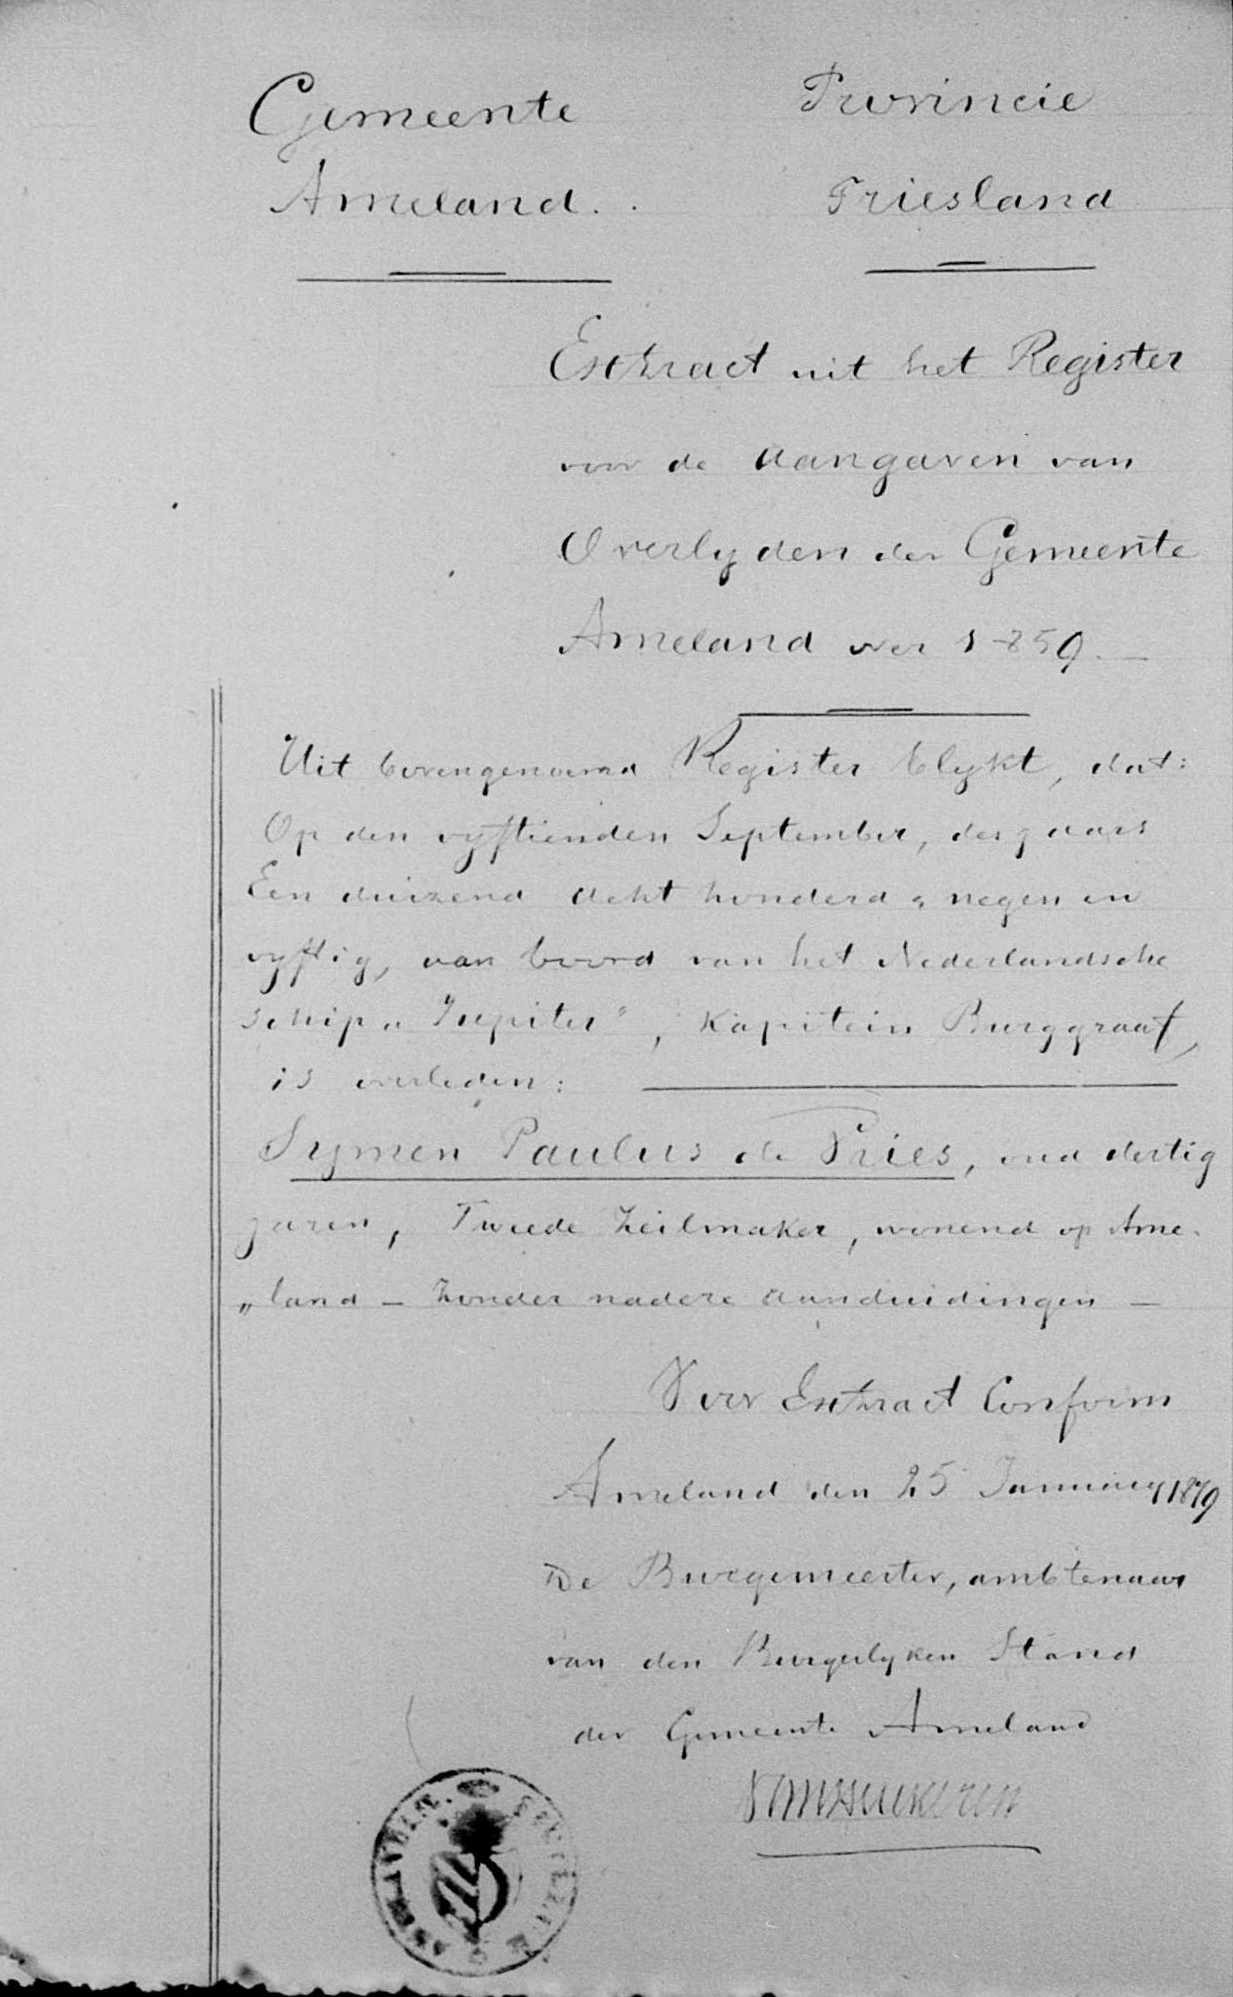 Gemeente
Ameland.
Provincie
Friesland
Extract uit het Register
voor de aangaven van
Overlyden der Gemeente
Ameland over 1859.
Uit bovengenoemd Register blykt, dat:
Op den vyftienden September, des jaars
Een duizend acht honderd negen en
vyftig, aan boord van het Nederlandsche
schip „Jupiter", Kapitein Burggraaf,
is overleden:
Symen Paulus de Vries, oud dertig
jaren, Tweede Zeilmaker, wonend op Ame-
„land – zonder nadere aanduidingen –
Voor Extract Conform
Ameland den 25 January 1879
De Burgemeester, ambtenaar
van den Burgerlyken Stand
der Gemeente Ameland